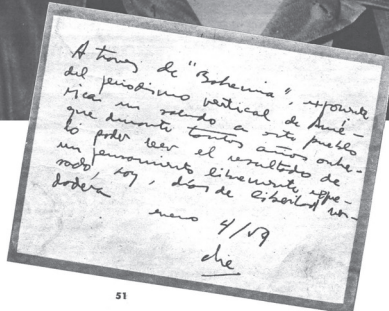 A traves de "Bohemia", exponente
del periodismo vertical de Amé-
rica: un saludo a este pueblo
que durante tantos años anhe-
ló poder leer el resultado de
un pensamiento libremente expre-
sado, hoy, días de libertad ver-
dadera
enero 4/59
che
51